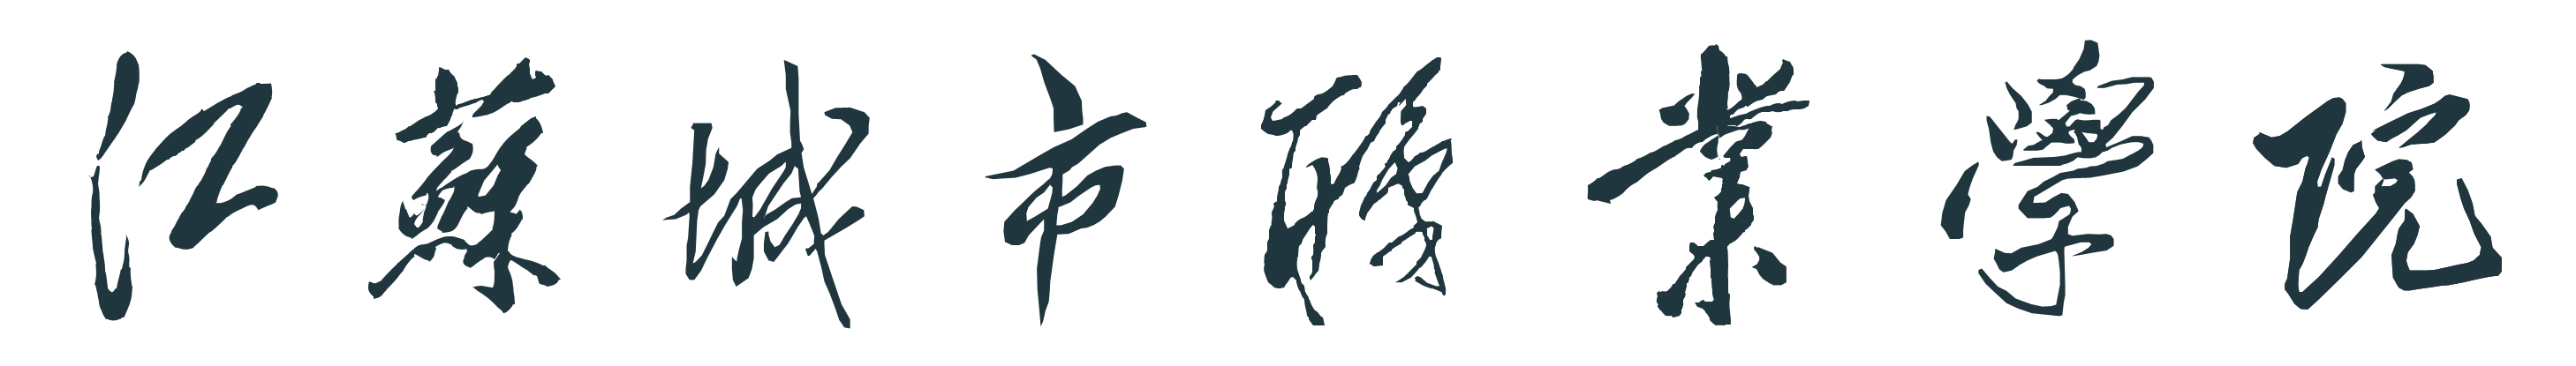 江蘇城市職業學院